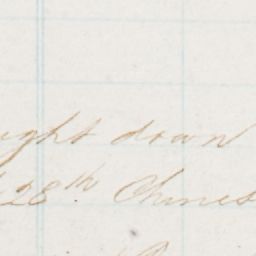 ught down
28th Chines